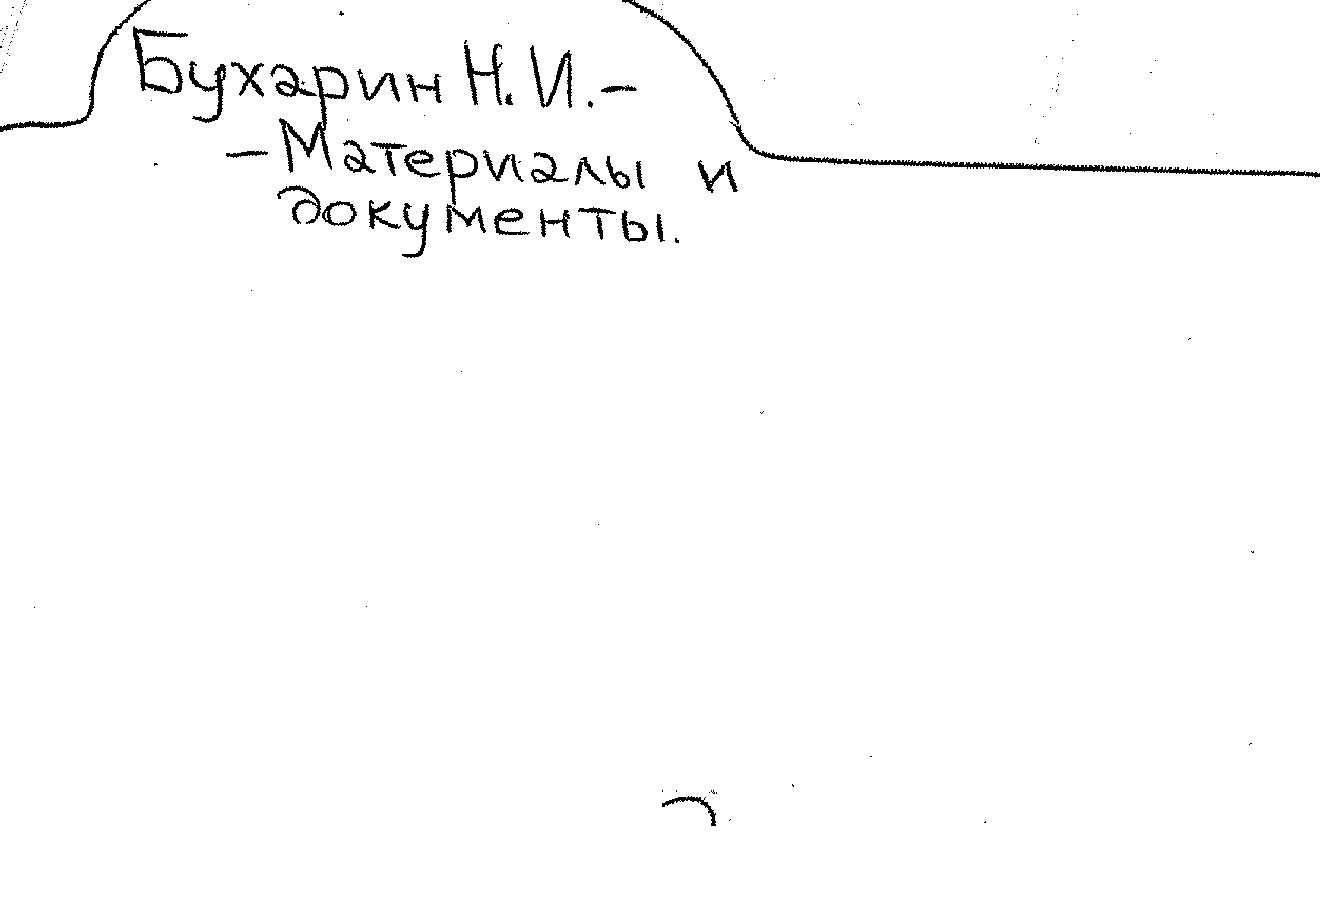 Бухарин Н.И.-
- Материалы и
документы.